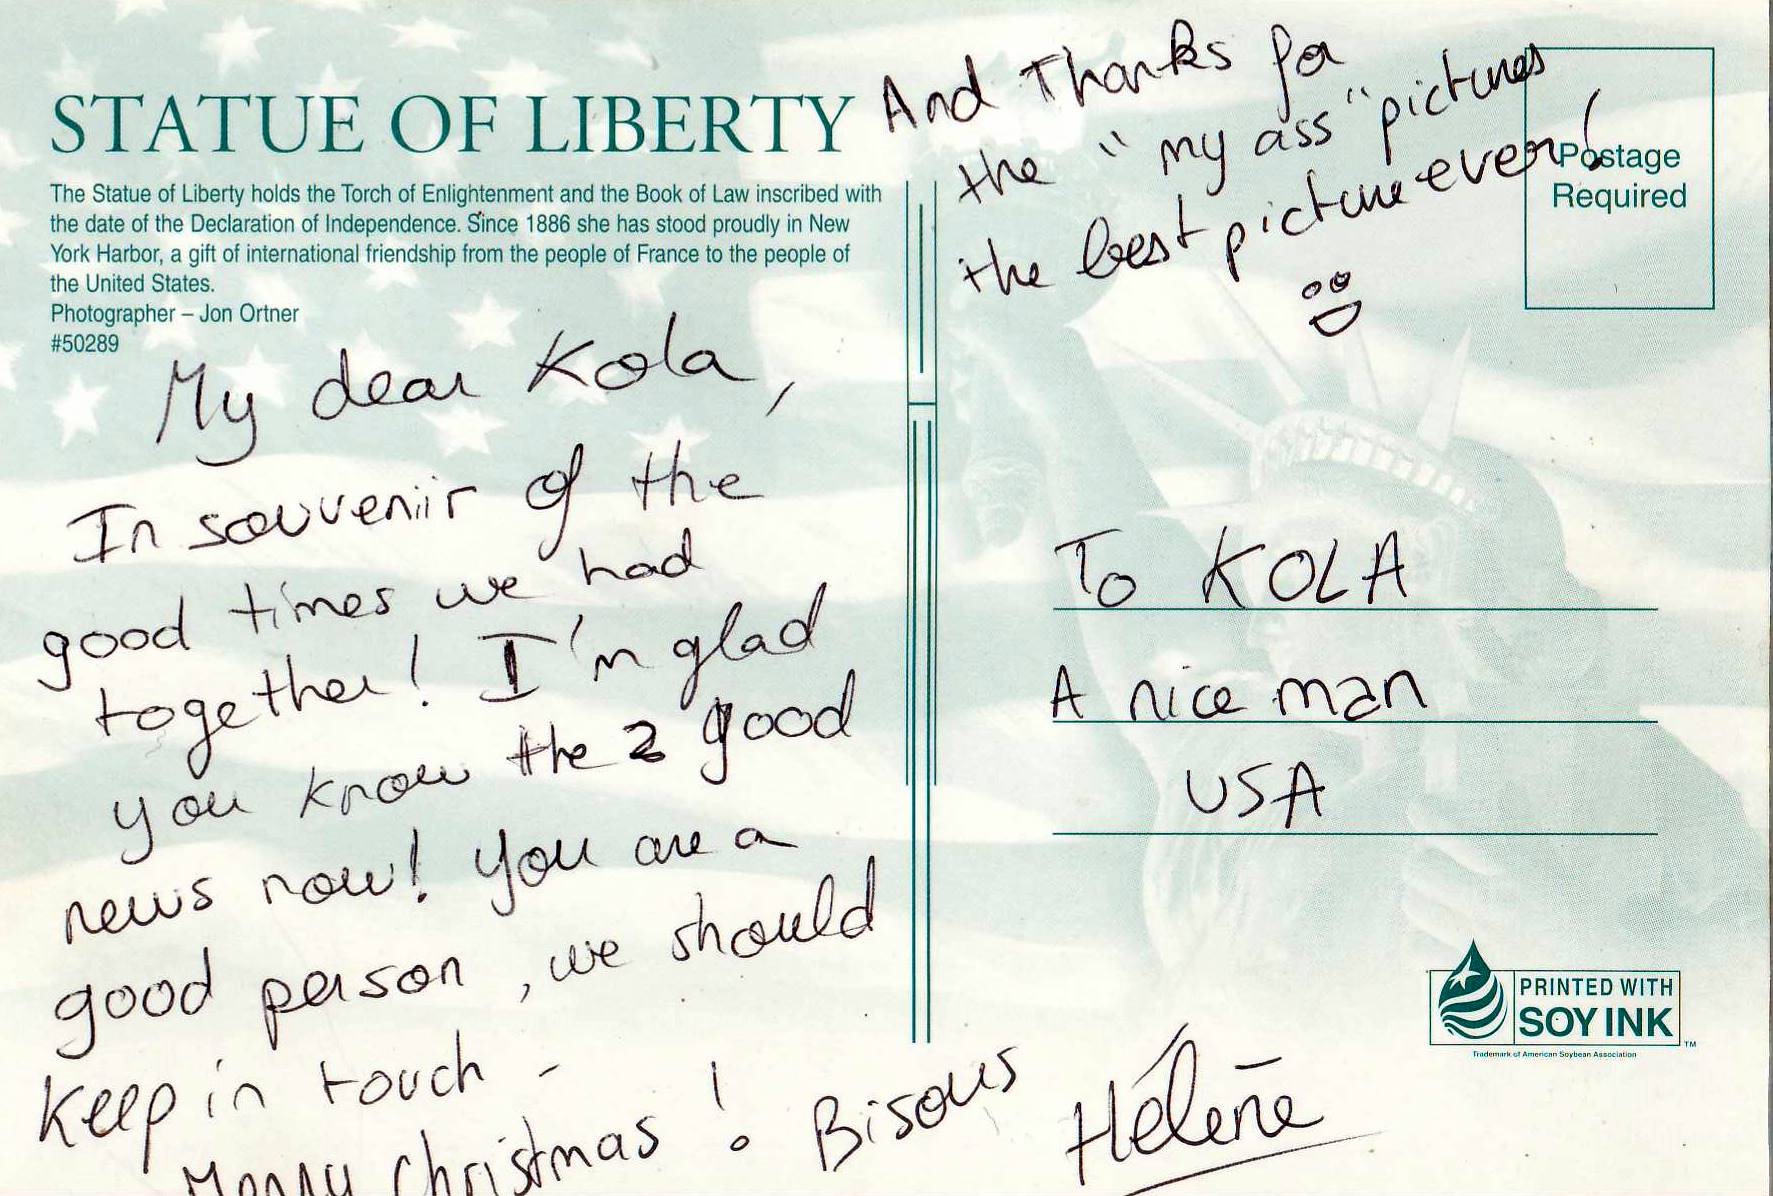 STATUE OF LIBERTY
The Statue of Liberty holds the Torch of Enlightenment and the Book of Law inscribed with
the date of the Declaration of Independence. Since 1886 she has stood proudly in New
York Harbor, a gift of international friendship from the people of France to the people of
the United States.
Photographer – Jon Ortner
#50289
My dear Kola,
In souveniir of the
good times we had
together! I'm glad
you know the 2 good
news now! You are a
good person, we should
keep in touch -
Merry Christmas! Bisous
Hélène
And Thanks for
the "my ass" pictures
the best picture ever!
Postage
Required
To KOLA
A nice man
USA
PRINTED WITH
SOY INK
TM
Trademark of American Soybean Association